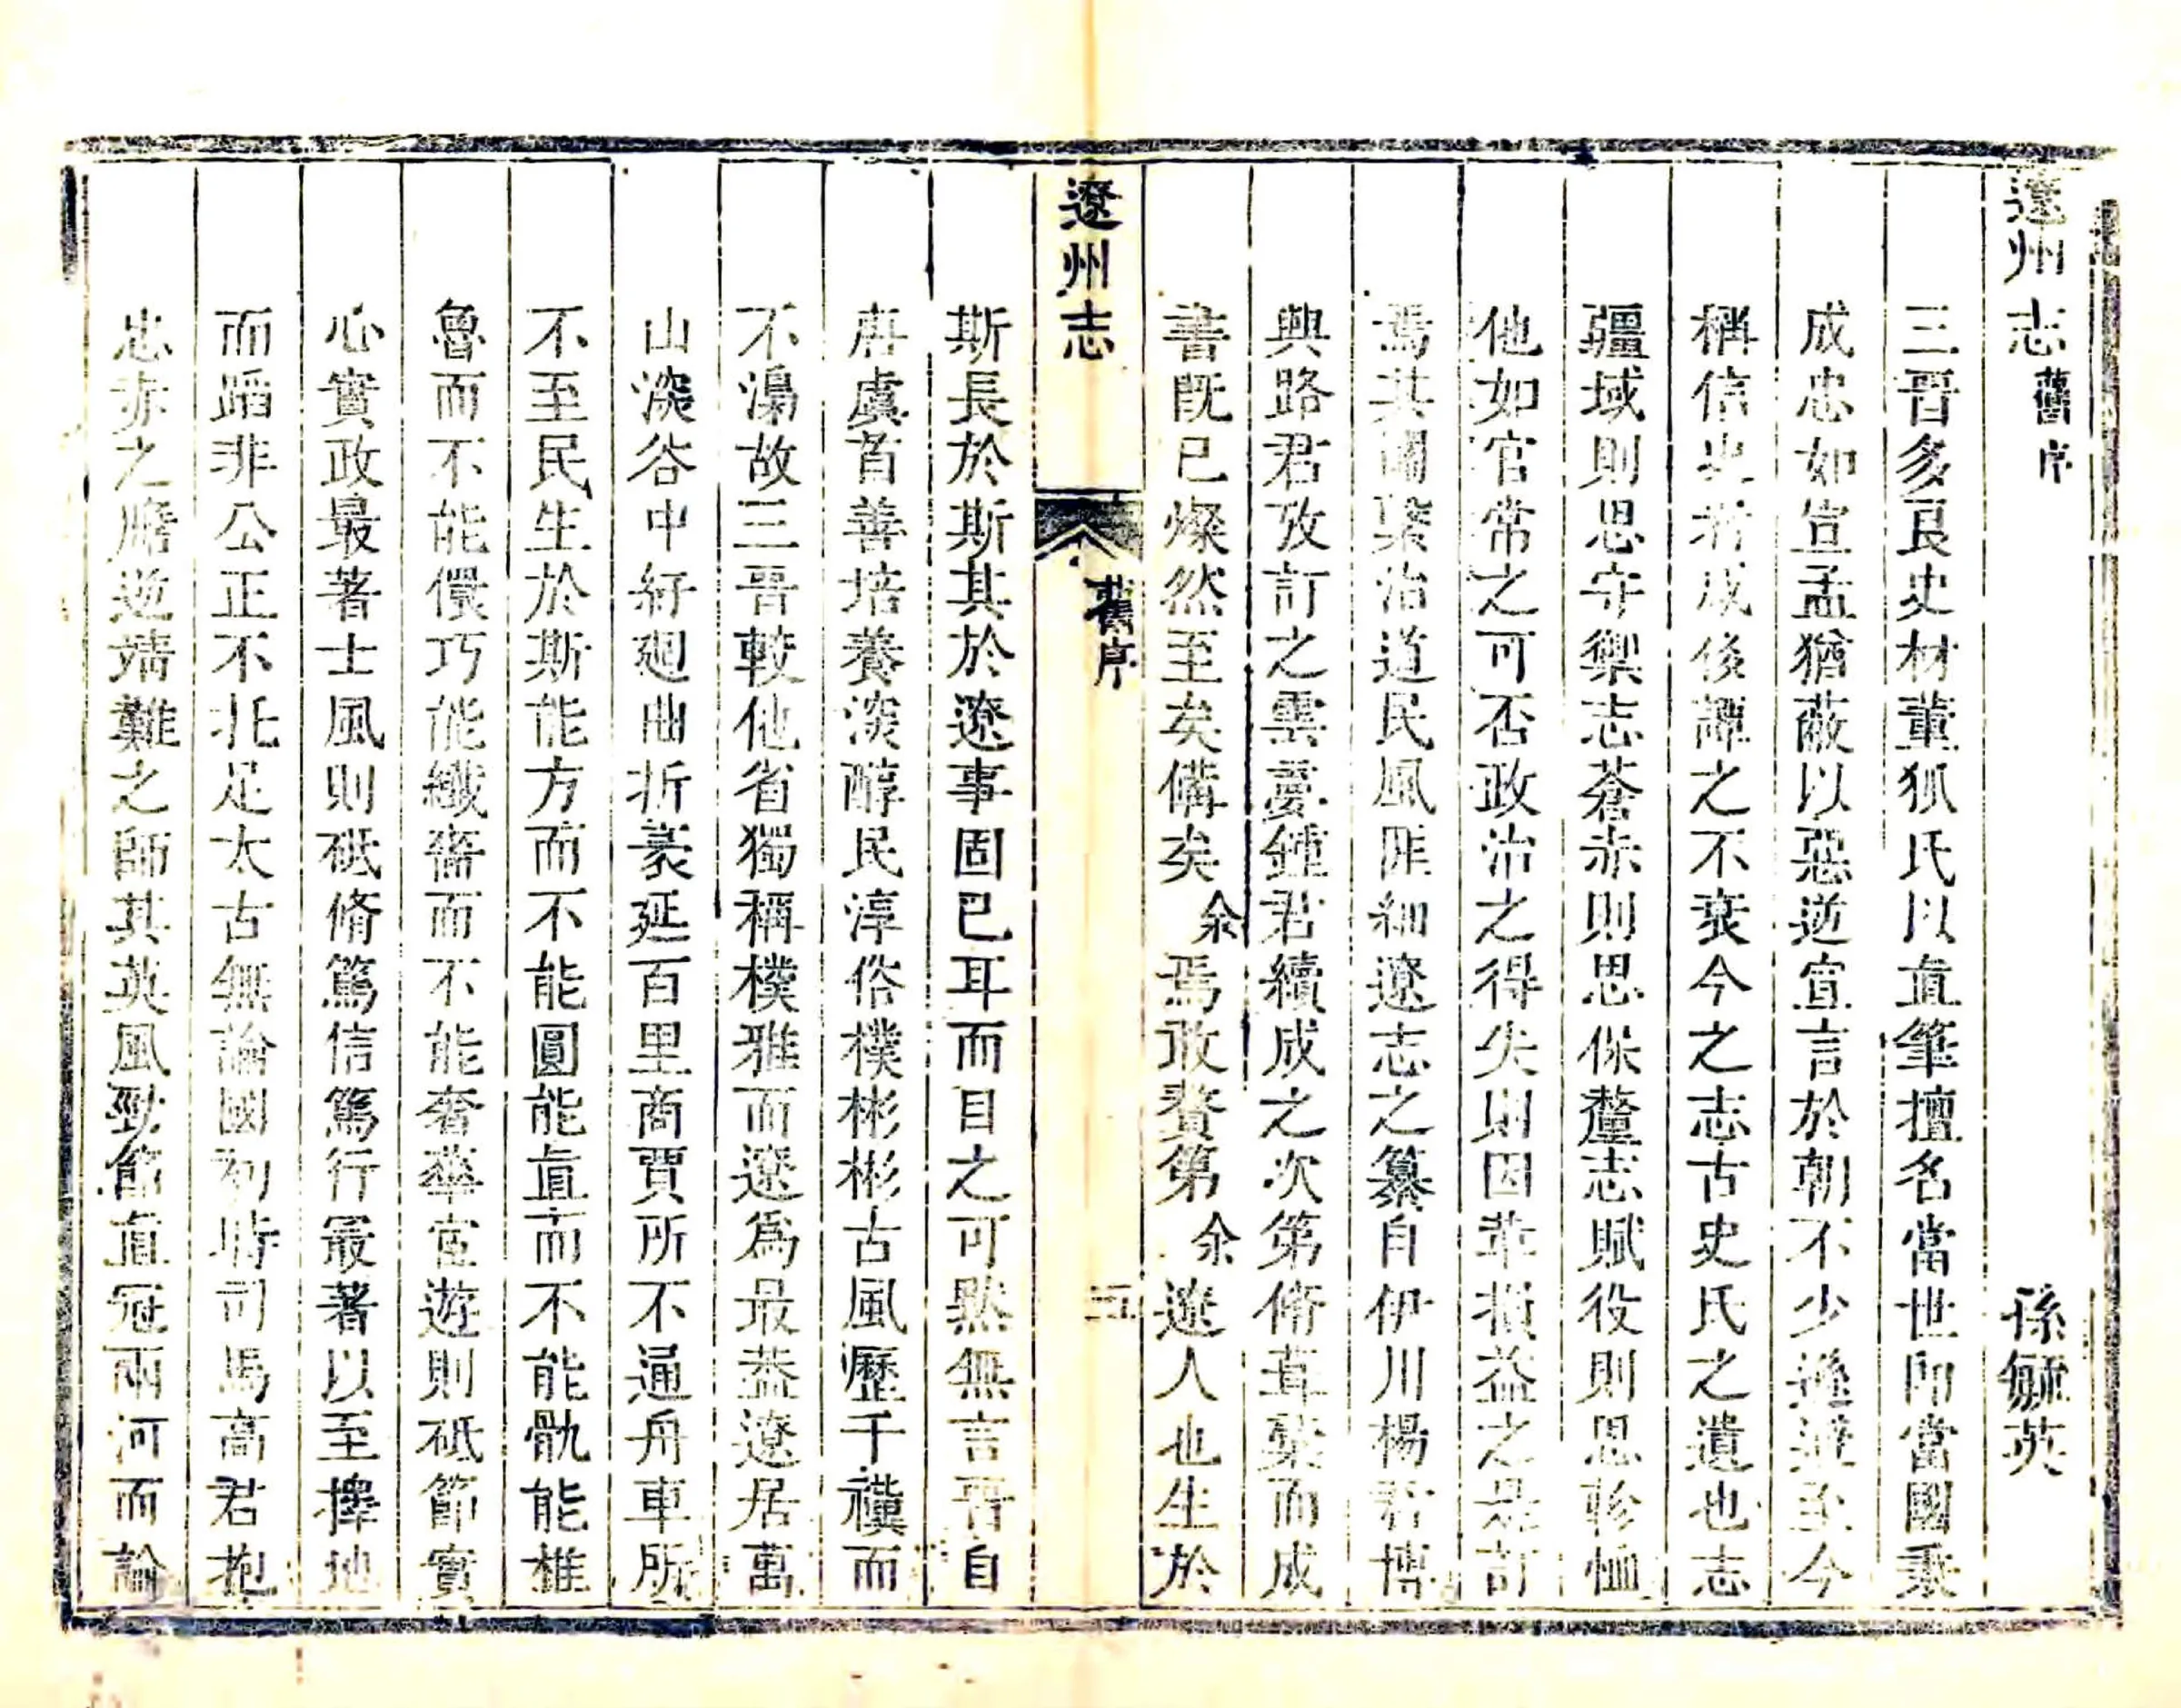 遼州志舊序 孫毓英
三晉多良史材董狐氏以直筆擅名當世卽當國秉
成忠如宣孟猶蔽以惡逆宣言於朝不少遜避至今
稱信史者咸後譚之不衰今之志古史氏之遺也志
疆域則思守禦志蒼赤則思保釐志賦役則思軫恤
他如官常之可否政治之得失則因革損益之是訂
焉其關繫治道民風匪細遼志之纂自伊川楊君博
興路君攷訂之雲夢鍾君續成之次第脩葺彙而成
書旣已燦然至矣備矣余焉敢贅第余遼人也生於
遼州志 舊序 三
斯長於斯其於遼事固已耳而目之可默無言晉自
唐虞首善培養深醇民淳俗樸彬彬古風歷千禩而
不漓故三晉較他省獨稱樸雅而遼爲最葢遼居萬
山深谷中紆廻曲折褎延百里商賈所不通舟車所
不至民生於斯能方而不能圓能直而不能骫能椎
魯而不能儇巧能纖嗇而不能奢華宦遊則砥節實
心實政最著士風則砥脩篤信篤行最著以至擇地
而蹈非公正不托足太古無論國初時司馬高君抱
忠赤之膽逆靖難之師其英風勁節直冠兩河而論